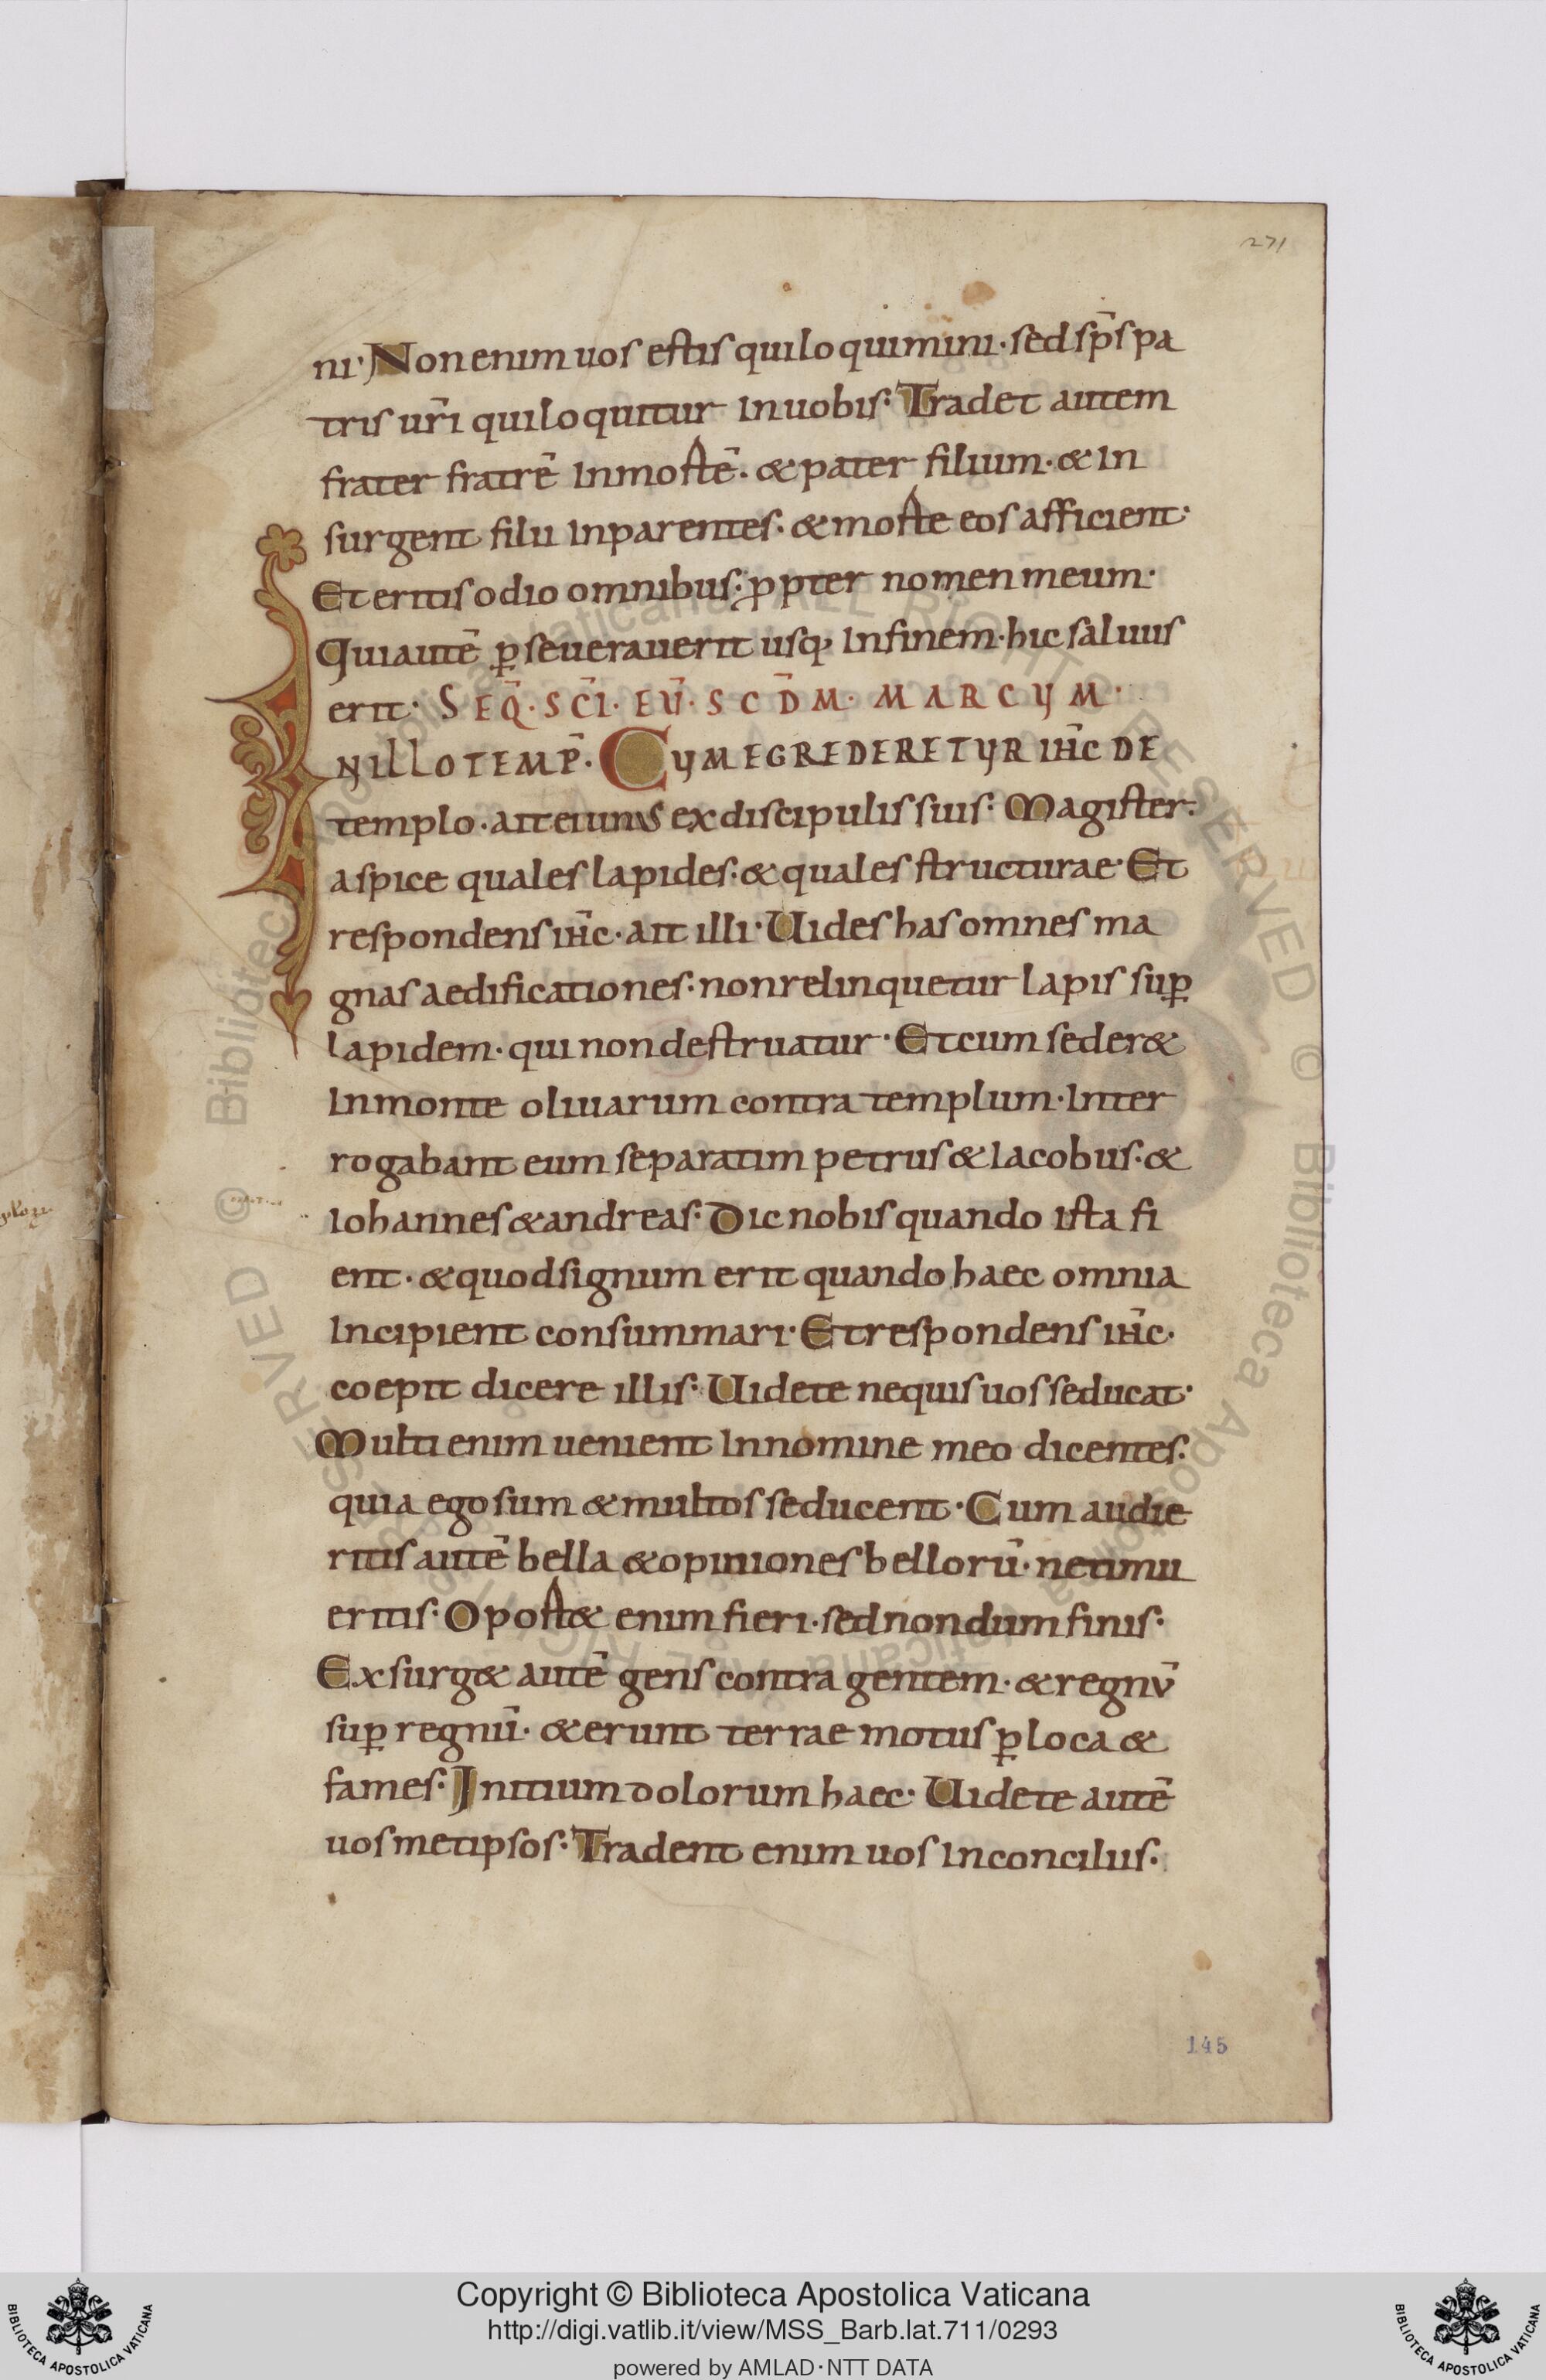 271
ni· Non enim uos estis qui loquimini· sed sp̄s pa
tris ur̄i qui loquitur In uobis· Tradet autem
frater fratrē In mortē· & pater filium· & In
surgent filii In parentes· & morte eos afficient·
Et eritis odio omnibus· ꝓpter nomen meum·
Qui autē ꝑseuerauerit usq; In finem· hic saluus
erit· SEQ̄· SC̄I· EŪ· SCD̄M· MARCUM·
IN ILLO TEMP̄· CUM EGREDERETUR IH̄C DE
templo· ait ei unus ex discipulis suis· Magister·
aspice quales lapides· & quales structurae· Et
respondens ih̄c· ait illi· Uides has omnes ma
gnas aedificationes· non relinquetur lapis suꝑ
lapidem· qui non destruatur· Et cum seder&
In monte oliuarum contra templum· Inter
rogabant eum separatim petrus & Iacobus· &
Iohannes & andreas· Dic nobis quando ista fi
ent· & quod signum erit quando haec omnia
Incipient consummari· Et respondens ih̄c·
coepit dicere illis· Uidete ne quis uos seducat·
Multi enim uenient In nomine meo dicentes·
quia ego sum & multos seducent· Cum audie
ritis autē bella & opiniones bellorū· ne timu
eritis· Oport& enim fieri· sed nondum finis·
Exsurg& autē gens contra gentem· & regnū
suꝑ regnū· & erunt terrae motus ꝑ loca &
fames· Initium dolorum haec· Uidete autē
uosmetipsos· Tradent enim uos In conciliis·
145
Copyright © Biblioteca Apostolica Vaticana
http://digi.vatlib.it/view/MSS_Barb.lat.711/0293
powered by AMLAD·NTT DATA
BIBLIOTECA APOSTOLICA VATICANA
BIBLIOTECA APOSTOLICA VATICANA